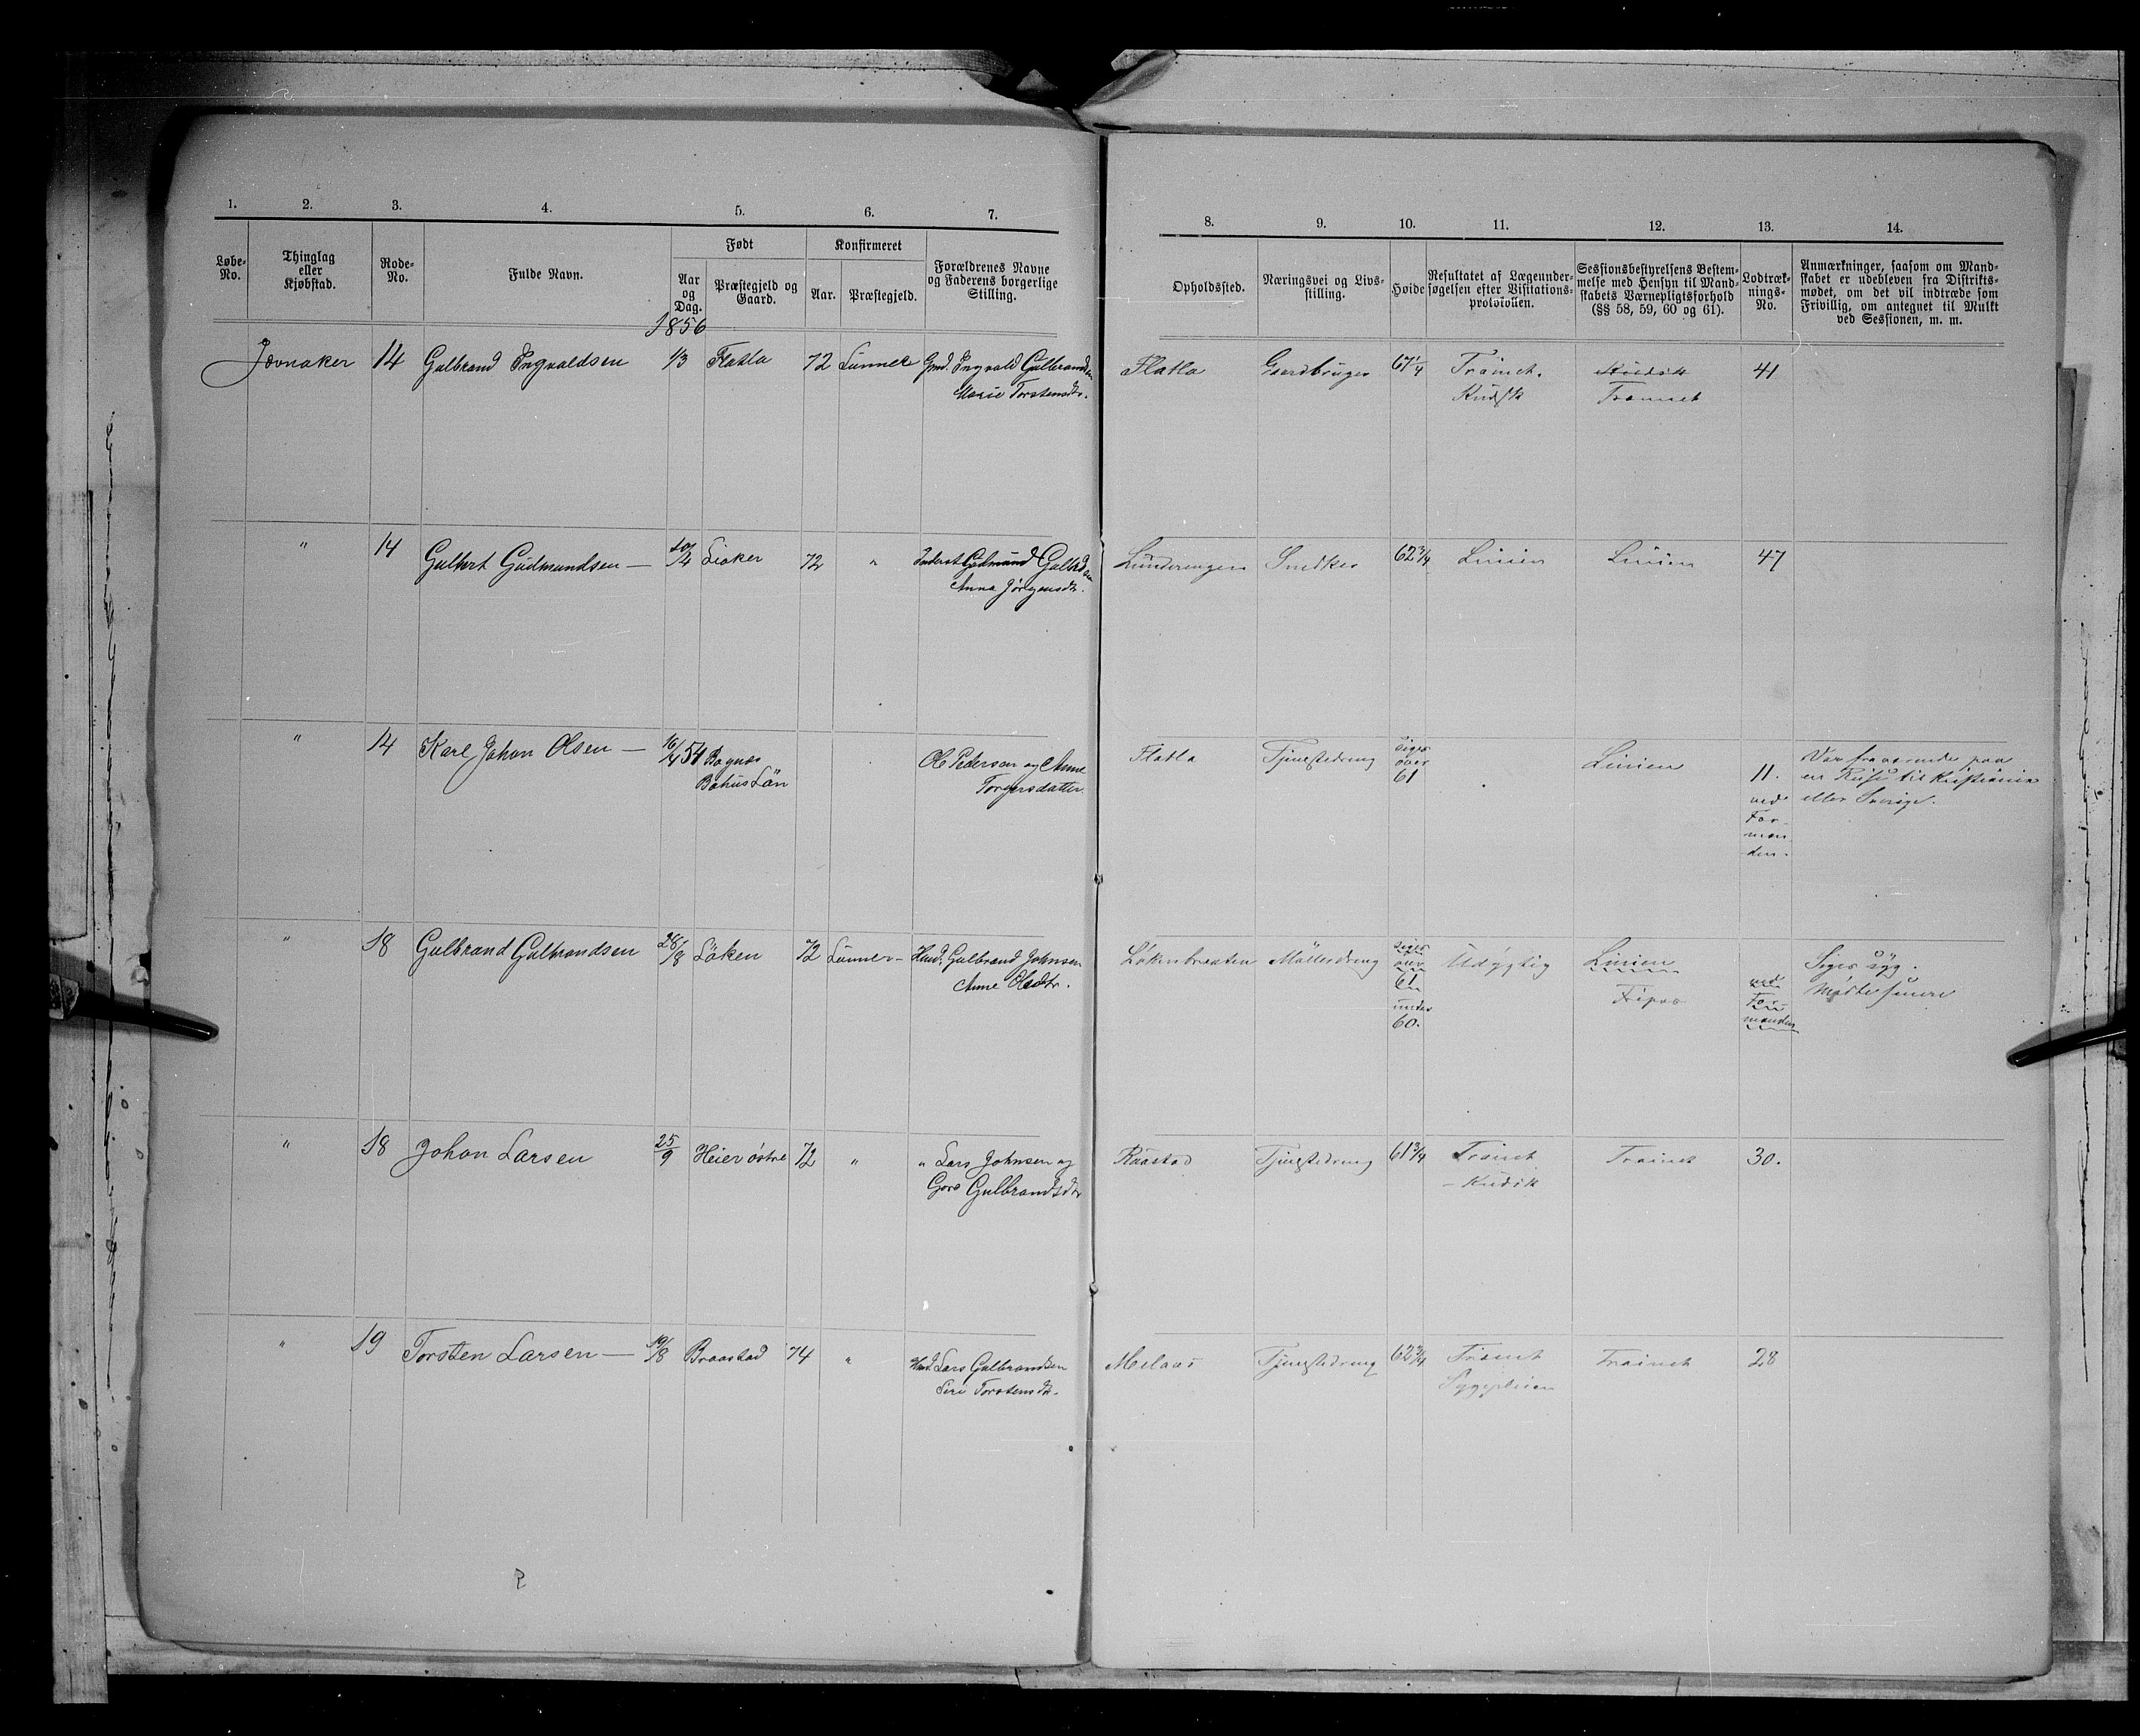 1. 2. 3. 4. 5. 6. 7.
Løbe-No. Thinglag eller Kjøbstad. Rode-No. Fulde Navn. Født Aar og Dag. Præstegjeld og Gaard. Konfirmeret Aar. Præstegjeld. Forældrenes Navne og Faderens borgerlige Stilling.
8. 9. 10. 11. 12. 13. 14.
Opholdssted. Næringsvei og Livsstilling. Høide Resultatet af Lægeundersøgelsen efter Visitationsprotokollen. Sessionsbestyrelsens Bestemmelse med Hensyn til Mandskabets Værnepligtsforhold (§§ 58, 59, 60 og 61). Lodtræknings-No. Anmærkninger, saasom om Mandskabet er udebleven fra Distriktsmødet, om det vil indtræde som Frivillig, om antegnet til Mulkt ved Sessionen, m. m.
1856
Jevnaker 14 Gulbrand Ingvaldsen 1/3 Flatla 72 Lunner Gmd. Ingvald Gulbrandsen
Marie Torstensdtr.
Flatla Gaardbruger 67 1/4 Trainet. Kudsk Kudsk Trainet 41
" 14 Gulbert Gudmundsen — 20/4 Lioker 72 " Inderst Gudmund Gulbdsen
Anna Jörgensdtr.
Lunderengen Snedker 62 3/4 Linien Linien 47
" 14 Karl Johan Olsen — 16/4 54 Bognæs
Bohus Län
Ole Pedersen og Anne
Torgersdatter.
Flatla Tjenestedreng siges over 61 Linien 11. ved Formanden.
Var fraværende paa
en Reise til Kristiania
eller Sverige.
" 18 Gulbrand Gulbrandsen 26/8 Löken 72 Lunner - Husmd. Gulbrand Johnsen
Anne Olsdtr.
Løkenbraaten Møllerdreng siges over 61 under 60. Udygtig Linien ved Formanden
Siges syg.
Mødte senere
" 18 Johan Larsen 25/9 Heier östre 72 " " Lars Johnsen og
Goro Gulbrandsdtr
Raastad Tjenestedreng 61 3/4 Trainet - Kudsk Trainet 30.
" 19 Torsten Larsen — 19/8 Braastad 74 " Husmd. Lars Gulbrandsen
Siri Torstensdtr.
Melaas Tjenestedreng 62 3/4 Trainet Sygepleien Trainet 28